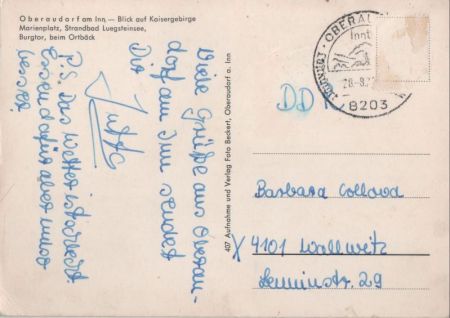 Oberaudorf am Inn, — Blick auf Kaisergebirge
Marienplatz, Strandbad Luegsteinsee,
Burgtor, beim Ortbäck
Viele Grüße aus Oberau-
dorf am Inn sendet
Dir
Jutta
P.S. Das Wetter ist
Essen dafür aber umso
besser
407 Aufnahme und Verlag Foto Beckert, Oberaudorf a. Inn
OBERAU
Inn
8203
DD
Barbara Collova
X 4101 Wallwitz
Leninstr. 29